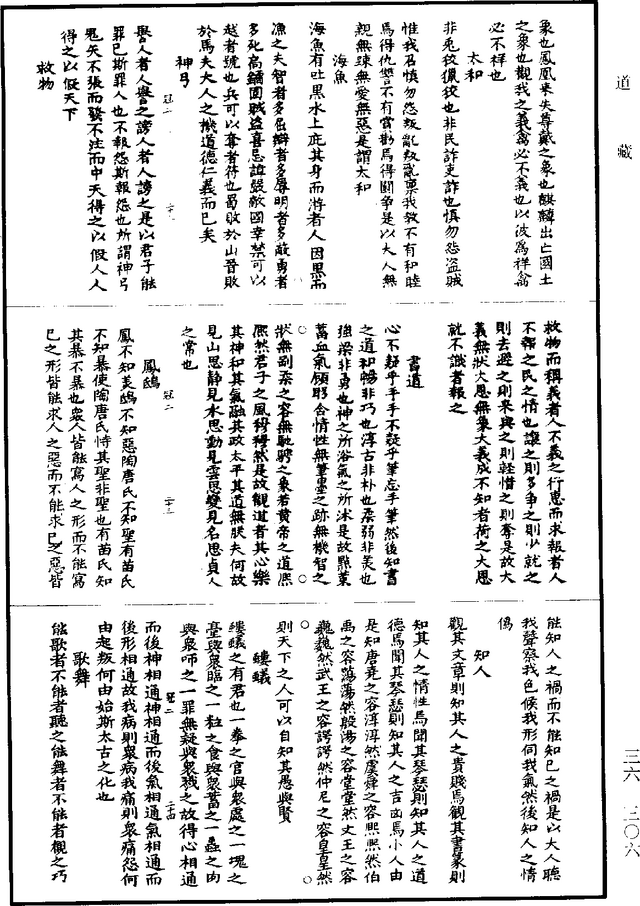 道藏
象也鳳凰來失尊戴之象也麒麟出亡國土
之象也觀我之義禽必不義也以彼為祥禽
必不祥也
太和
非兎狡獵狡也非民詐吏詐也慎勿怨盜賊
惟我召慎勿怨叛亂叛亂稟我教不有和睦
焉得仇讐不有賞勸焉得鬭爭是以大人無
親無疎無愛無惡是謂太和
海魚
海魚有吐黑水上庇其身而游者人因黑而
漁之夫智者多屈辯者多辱明者多蔽勇者
多死高鐍固賊盜喜忌諱嚴敵國幸禁可以
越者號也兵可以奪者符也蜀敗於山晉敗
於馬夫大人之機道德仁義而已矣
神弓
譽人者人譽之謗人者人謗之是以君子能
罪己斯罪人也不報怨斯報怨也所謂神弓
鬼矢不張而發不注而中天得之以假人人
得之以假天下
救物
救物而稱義者人不義之行惠而求報者人
不報之民之情也讓之則多爭之則少就之
則去避之則來與之則輕惜之則奪是故大
義無狀大恩無象大義成不知者荷之大恩
就不識者報之
書道
心不疑乎手手不疑乎筆忘手筆然後知書
之道和暢非巧也淳古非朴也柔弱非美也
強梁非勇也神之所浴氣之所沐是故點策
蓄血氣顧盼含情性無筆墨之跡無機智之
狀無剛柔之容無馳騁之象若黃帝之道熈
熈然君子之風穆穆然是故觀道者其心樂
其神和其氣融其政太平其道無朕夫何故
見山思靜見水思動見雲思變見石思貞人
之常也
鳳鴟
鳳不知美鴟不知惡陶唐氏不知聖有苗氏
不知暴使陶唐氏恃其聖非聖也有苗氏知
其暴不暴也衆人皆能寫人之形而不能寫
己之形皆能求人之惡而不能求己之惡皆
能知人之禍而不能知己之禍是以大人聽
我聲察我色候我形伺我氣然後知人之情
偽
知人
觀其文章則知其人之貴賤焉觀其書篆則
知其人之情性焉聞其琴瑟則知其人之道
德焉聞其琴瑟則知其人之吉凶焉小人由
是知唐堯之容淳淳然虞舜之容熈熈然伯
禹之容蕩蕩然殷湯之容堂堂然文王之容
巍巍然武王之容諤諤然仲尼之容皇皇然
則天下之人可以自知其愚與賢
螻蟻
螻蟻之有君也一拳之宮與衆處之一塊之
臺與衆臨之一粒之食與衆蓄之一蟲之肉
與衆咂之一罪無疑與衆戮之故得心相通
而後神相通神相通而後氣相通氣相通而
後形相通故我病則衆病我痛則衆痛怨何
由起叛何由始斯太古之化也
歌舞
能歌者不能者聽之能舞者不能者觀之巧
三六 三〇六